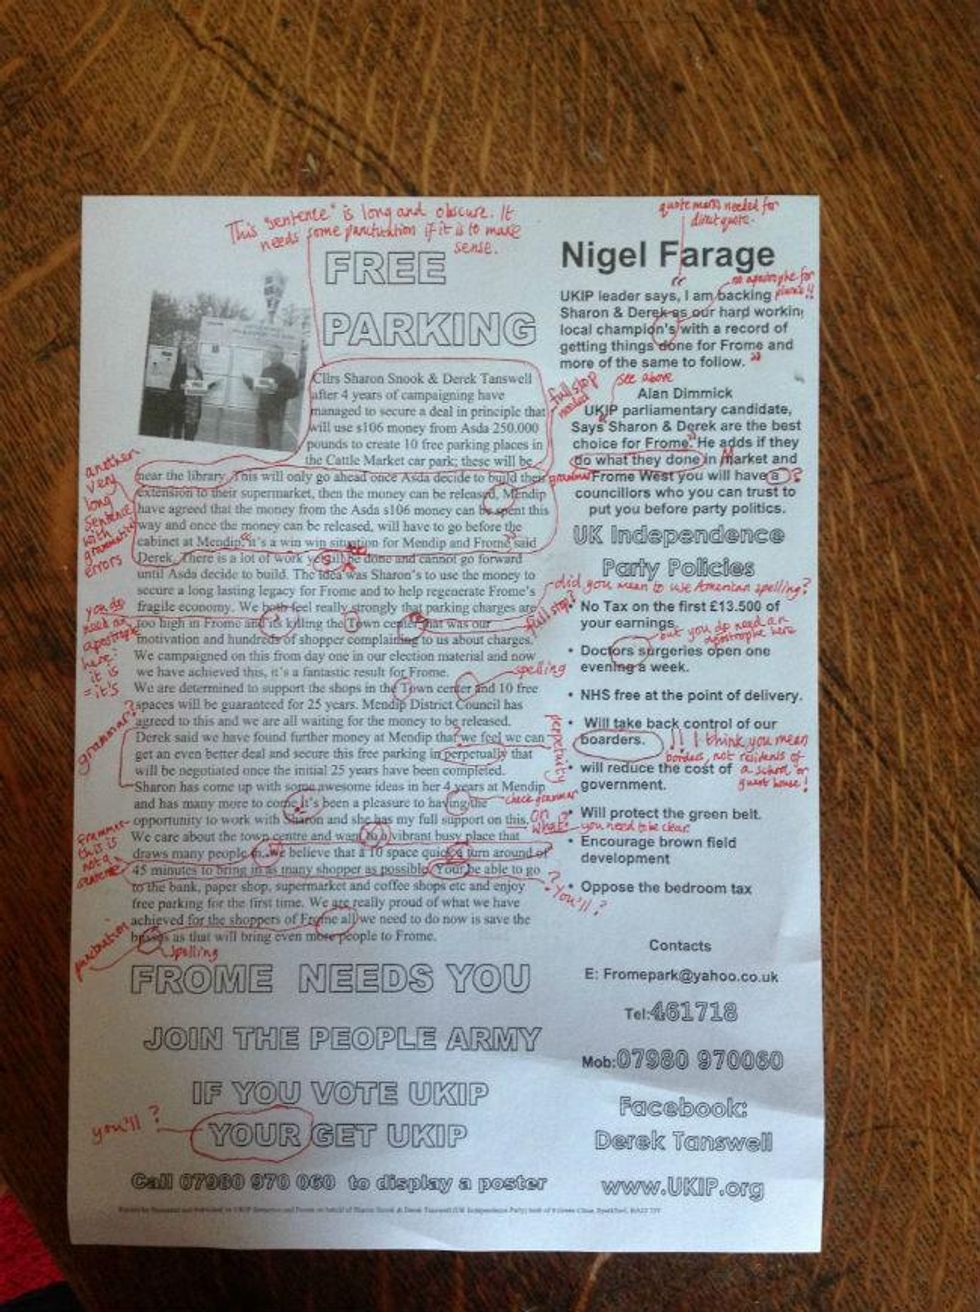 This "sentence" is long and obscure. It
needs some punctuation if it is to make
sense.
FREE
PARKING
Cllrs Sharon Snook & Derek Tanswell
after 4 years of campaigning have
managed to secure a deal in principle that
will use s106 money from Asda 250.000
pounds to create 10 free parking places in
the Cattle Market car park; these will be
near the library. This will only go ahead once Asda decide to build their
extension to their supermarket, then the money can be released, Mendip
have agreed that the money from the Asda s106 money can be spent this
way and once the money can be released, will have to go before the
cabinet at Mendip, it's a win win situation for Mendip and Frome said
Derek. There is a lot of work still be done and cannot go forward
until Asda decide to build. The idea was Sharon's to use the money to
secure a long lasting legacy for Frome and to help regenerate Frome's
fragile economy. We both feel really strongly that parking charges are
too high in Frome and is killing the Town center that was our
motivation and hundreds of shopper complaining to us about charges.
We campaigned on this from day one in our election material and now
we have achieved this, it's a fantastic result for Frome.
We are determined to support the shops in the Town center and 10 free
spaces will be guaranteed for 25 years. Mendip District Council has
agreed to this and we are all waiting for the money to be released.
Derek said we have found further money at Mendip that we feel we can
get an even better deal and secure this free parking in perpetually that
will be negotiated once the initial 25 years have been completed.
Sharon has come up with some awesome ideas in her 4 years at Mendip
and has many more to come, it's been a pleasure to having the
opportunity to work with Sharon and she has my full support on this.
We care about the town centre and want to a vibrant busy place that
draws many people in. we believe that a 10 space quick a turn around of
45 minutes to bring in as many shopper as possible. Your be able to go
to the bank, paper shop, supermarket and coffee shops etc and enjoy
free parking for the first time. We are really proud of what we have
achieved for the shoppers of Frome all we need to do now is save the
as that will bring even more people to Frome.
FROME NEEDS YOU
JOIN THE PEOPLE ARMY
IF YOU VOTE UKIP
YOUR GET UKIP
Call 07980 970 060 to display a poster
another
very
long
sentence
with
grammatical
errors
you do
need an
apostrophe
here:
it is
= it's
grammar?
grammar
this is
not a
sentence
punctuation
spelling
you'll?
full stop
needed
grammar
full stop?
did you mean to use American spelling?
spelling
perpetuity
check grammar
on
what?
you need to be clear
? You'll?
quote marks needed for
direct quote.
Nigel Farage
no apostrophe for
plurals!!
UKIP leader says, I am backing
Sharon & Derek as our hard working
local champion's with a record of
getting things done for Frome and
more of the same to follow.
see above
Alan Dimmick
UKIP parliamentary candidate,
Says Sharon & Derek are the best
choice for Frome. He adds if they
do what they done in Market and
Frome West you will have a
councillors who you can trust to
put you before party politics.
UK Independence
Party Policies
• No Tax on the first £13.500 of
your earnings.
but you do need an
apostrophe here
• Doctors surgeries open one
evening a week.
• NHS free at the point of delivery.
• Will take back control of our
boarders.
!! I think you mean
borders, not residents of
a school or
guest house!
• will reduce the cost of
government.
• Will protect the green belt.
• Encourage brown field
development
• Oppose the bedroom tax
Contacts
E: Fromepark@yahoo.co.uk
Tel:461718
Mob:07980 970060
Facebook:
Derek Tanswell
www.UKIP.org